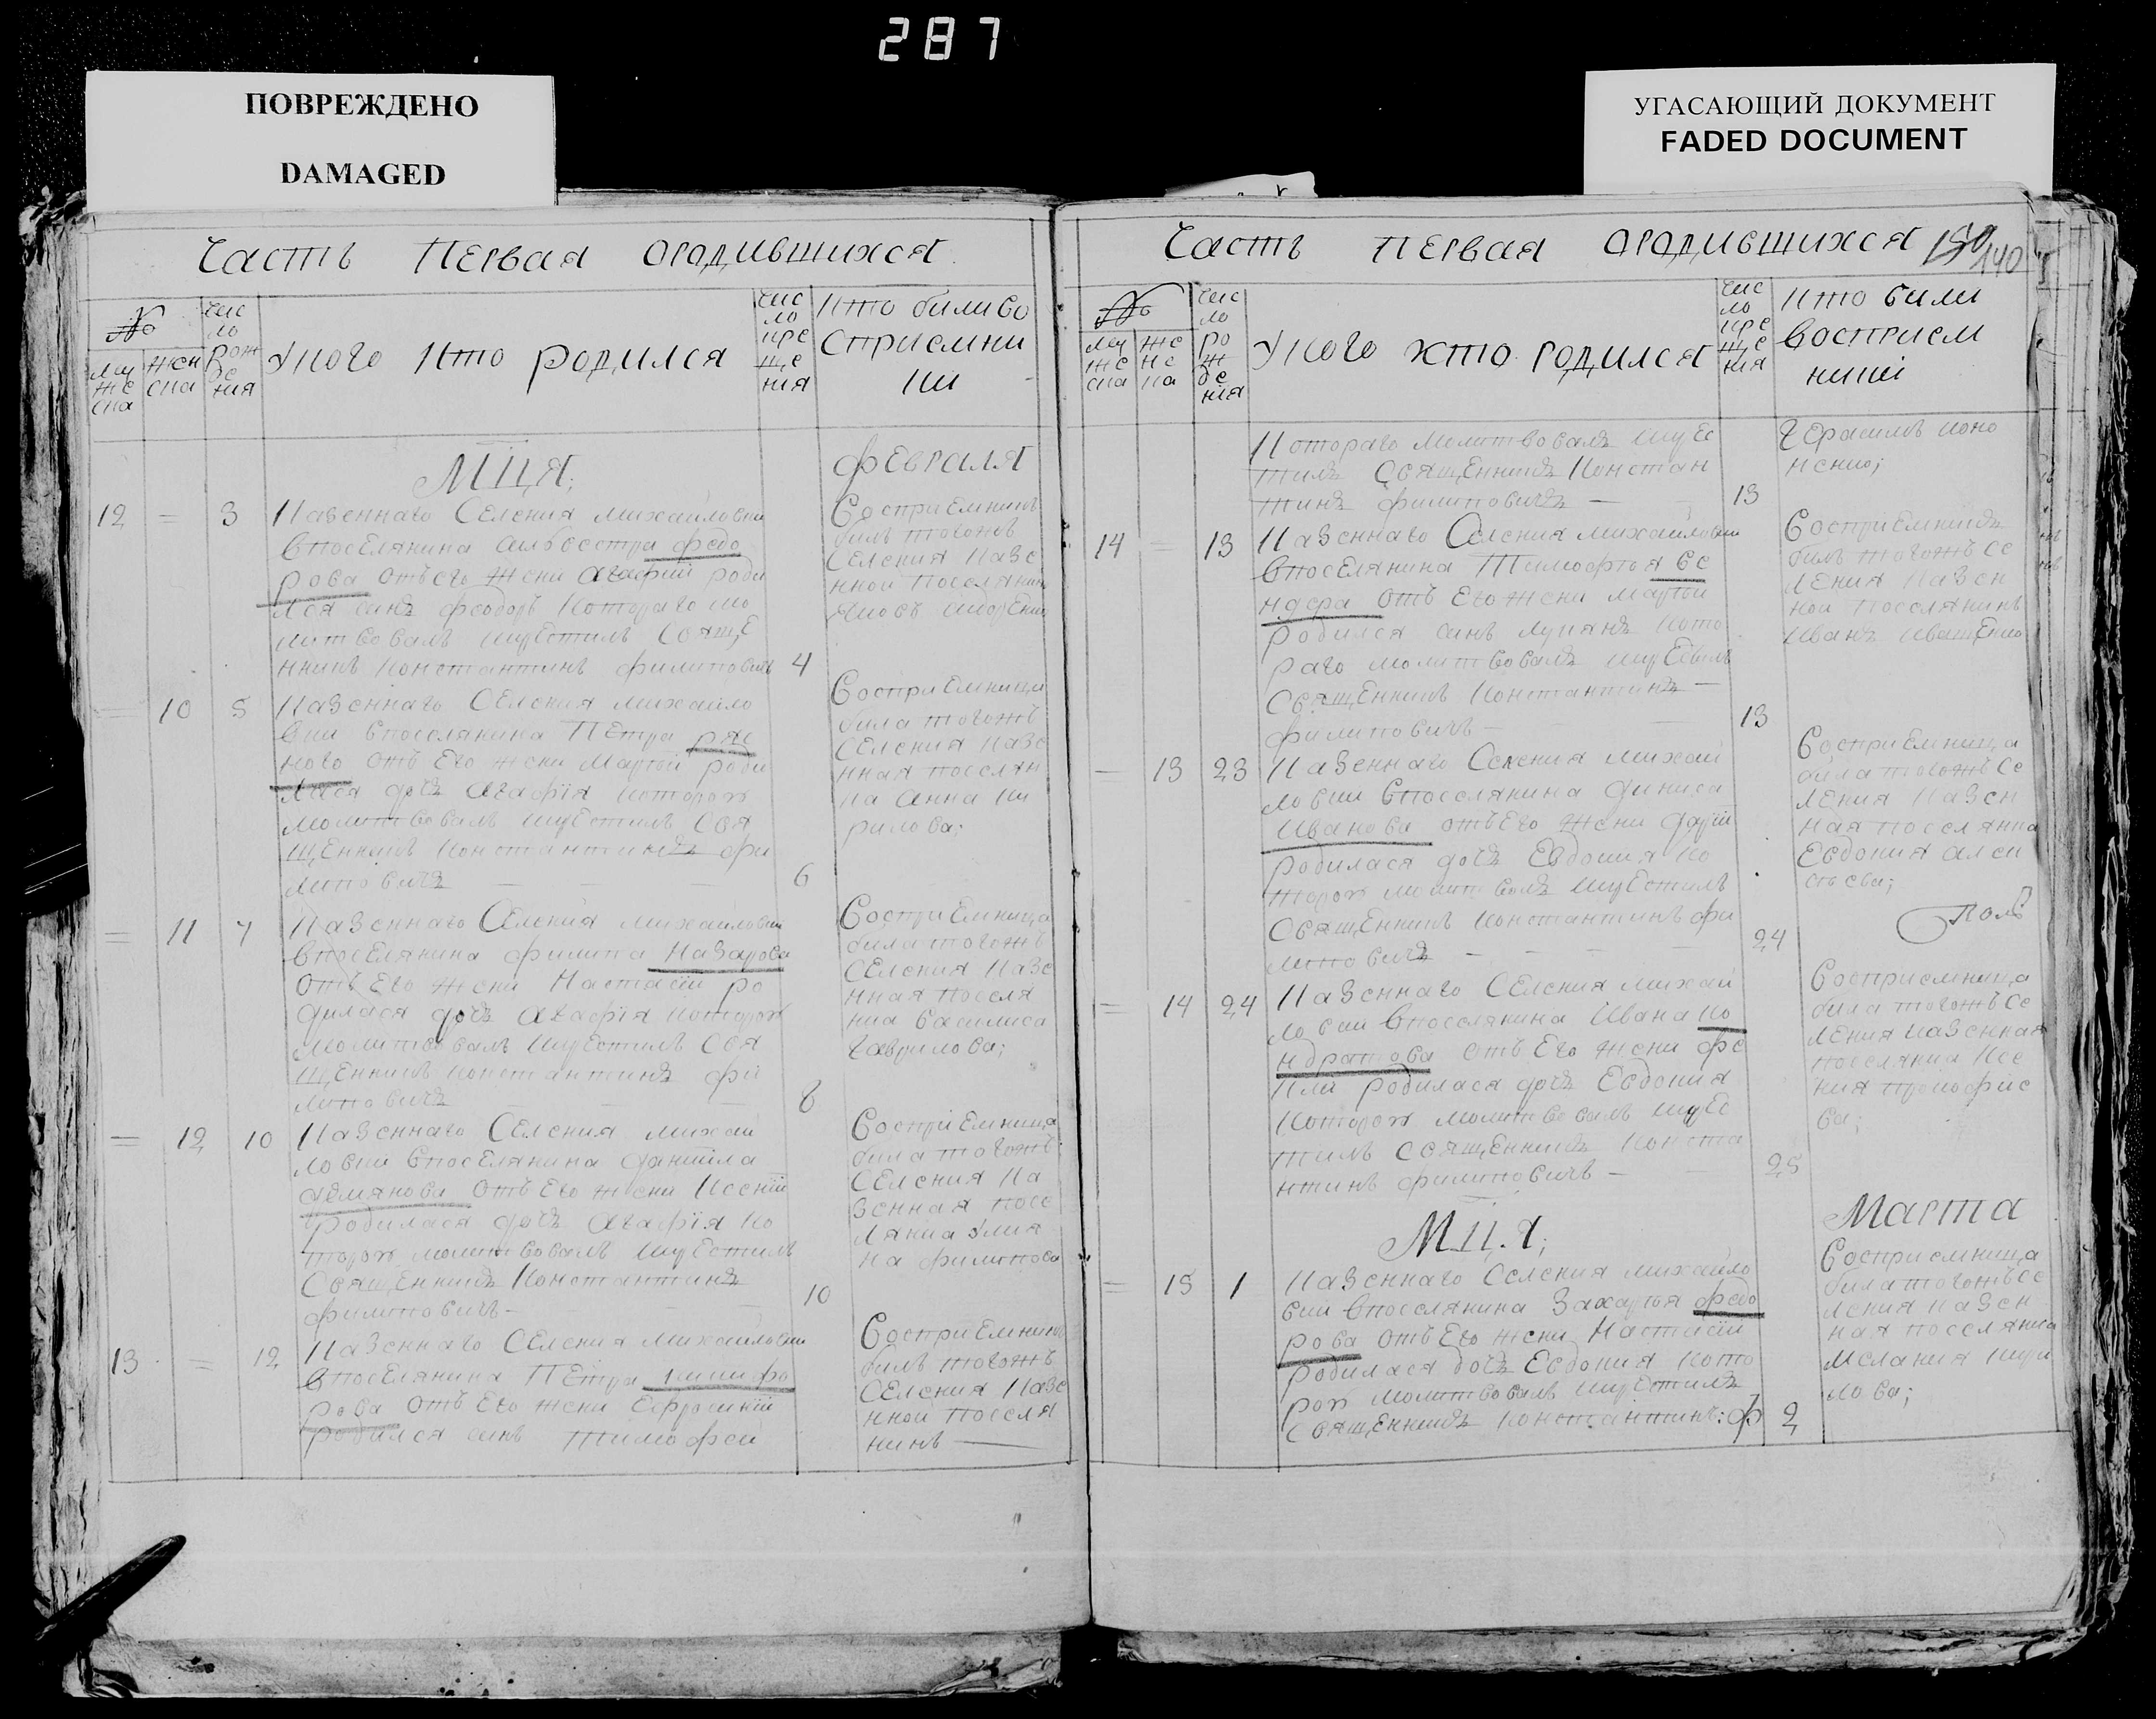 287
ПОВРЕЖДЕНО
DAMAGED
УГАСАЮЩИЙ ДОКУМЕНТ
FADED DOCUMENT
Часть Первая ородившихся
№
мужеска
женска
число рождения
Укого Кто родился
число крещения
Кто били восприемники
МЦА,
Февраля
12 = 3
Казеннаго Селения михайловки
впоселянина силвестра федо
рова отъ его жени агафіи роди
лся синъ феодоръ Котораго мо
литвовалъ икрестилъ Свяще
нникъ Константинъ филиповичъ 4
Восприемникъ
билъ тогожъ
Селения Казе
нной поселянин
= 10 5
Казеннаго Селения михайло
вки впоселянина Петра ряс
ного отъ Его жени Марфи роди
лася дочь Агафія Которою
молитвовалъ икрестилъ Свя
щенникъ Константинъ фи
липовичъ — — — 6
Восприемница
била тогожъ
Селения Казе
нная поселян
ка Анна Ки
рилова;
= 11 7
Казеннаго Селения михайловки
впоселянина филипа Назарова
отъ Его жени Настасіи ро
дилася дочь Агафія Которою
молитвовалъ икрестилъ Свя
щенникъ Константинъ фи
липовичъ — — — 8
Восприемница
била тогожъ
Селения Казе
нная поселя
нка Василиса
Гаврилова;
= 12 10
Казеннаго Селения михай
ловки впоселянина даниила
демянова отъ Его жени Ксении
родилася дочь Агафія Ко
торою молитвовалъ икрестилъ
Священникъ Константинъ
филиповичъ — — — 10
Восприемница
била тогожъ
Селения Ка
зенная посе
лянка улия
на филипова
13 = 12
Казеннаго Селения михайловки
впоселянина Петра никифо
рова отъ Его жени Ефросинии
родился синъ Тимофей
Восприемникъ
билъ тогожъ
Селения Казе
нной поселя
нинъ —
Часть первая ородившихся 150 140
№
мужеска
женска
число рожденія
Укого хто родился
число крещения
Кто били восприемникиі
Котораго молитвовалъ икрес
тилъ Священникъ Констан
тинъ филиповичъ — 13
Герасимъ Коно
ненко;
14 = 13
Казеннаго Селения михайловки
впоселянина Тимофея Бе
ндера отъ Его жени марфи
родился синъ лукянъ Кото
раго молитвовалъ икрестилъ
Священникъ Константинъ —
филиповичъ — — 13
Восприемникъ
билъ тогожъ Се
ления Казен
ной поселянинъ
Иванъ Иващенко
= 13 23
Казеннаго Селения михай
ловки впоселянина дениса
Иванова отъ Его жени дарии
родилася дочь Евдокия Ко
торою молитвовалъ икрестилъ
Священникъ Константинъ фи
липовичъ — — — 24
Восприемница
била тогожъ Се
ления Казен
ная поселянка
Евдокия алек
сеева;
= 14 24
Казеннаго Селения михай
ловки впоселянина Ивана Ко
ндратова отъ Его жени фе
кли родилася дочь Евдокия
Которою молитвовалъ икрес
тилъ Священникъ Конста
нтинъ филиповичъ — 25
Восприемница
била тогожъ Се
ления казенная
поселянка Ксе
ния прокофие
ва;
МЦ.А;
Марта
= 15 1
Казеннаго Селения михайло
вки впоселянина Захария федо
рова отъ Его жени Настасіи
родилася дочь Евдокия Кото
рою молитвовалъ икрестилъ
Священникъ Константинъ: ф 2
Восприемница
била тогожъ Се
ления Казен
ная поселянка
Мелания Кири
лова;